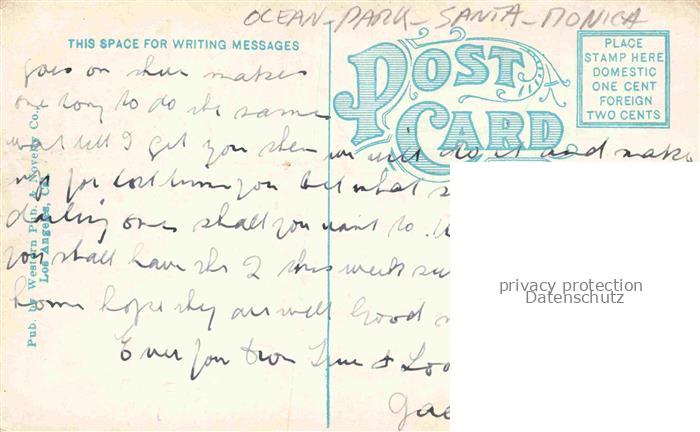 OCEAN - PARK - SANTA - MONICA
THIS SPACE FOR WRITING MESSAGES
POST CARD
PLACE
STAMP HERE
DOMESTIC
ONE CENT
FOREIGN
TWO CENTS
goes on shee makes
one long to do the same
wait till I get you then we will do it and make
up for lost time you bet what
darling ones shall you want to
you shall have the 2 this week
home hope they are well Good
Ever your True &
Pub. by Western Pub. & Novelty Co.,
Los Angeles, Cal.
privacy protection
Datenschutz